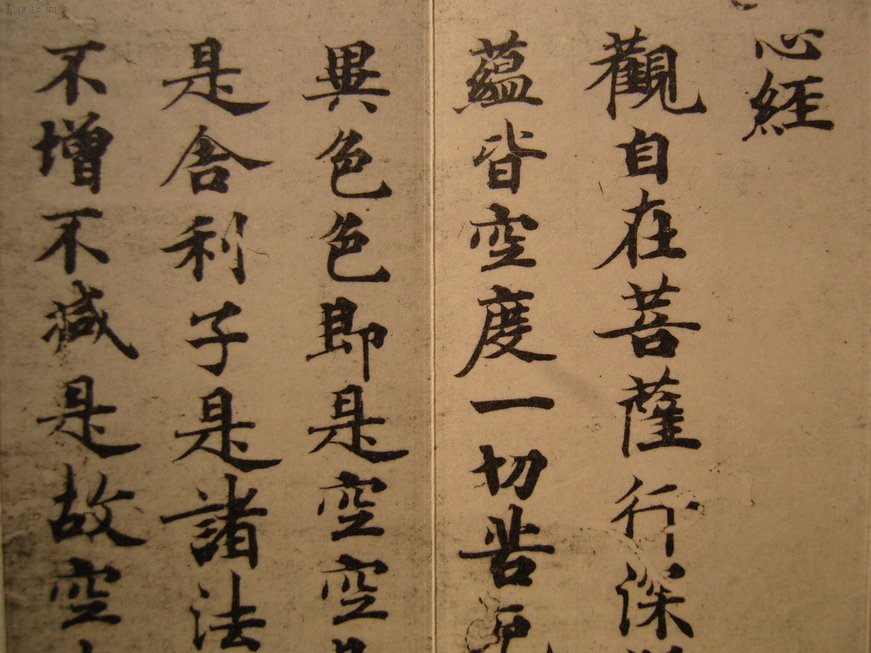 心經
觀自在菩薩行深
蘊皆空度一切苦
異色色即是空空
是舍利子是諸法
不增不減是故空